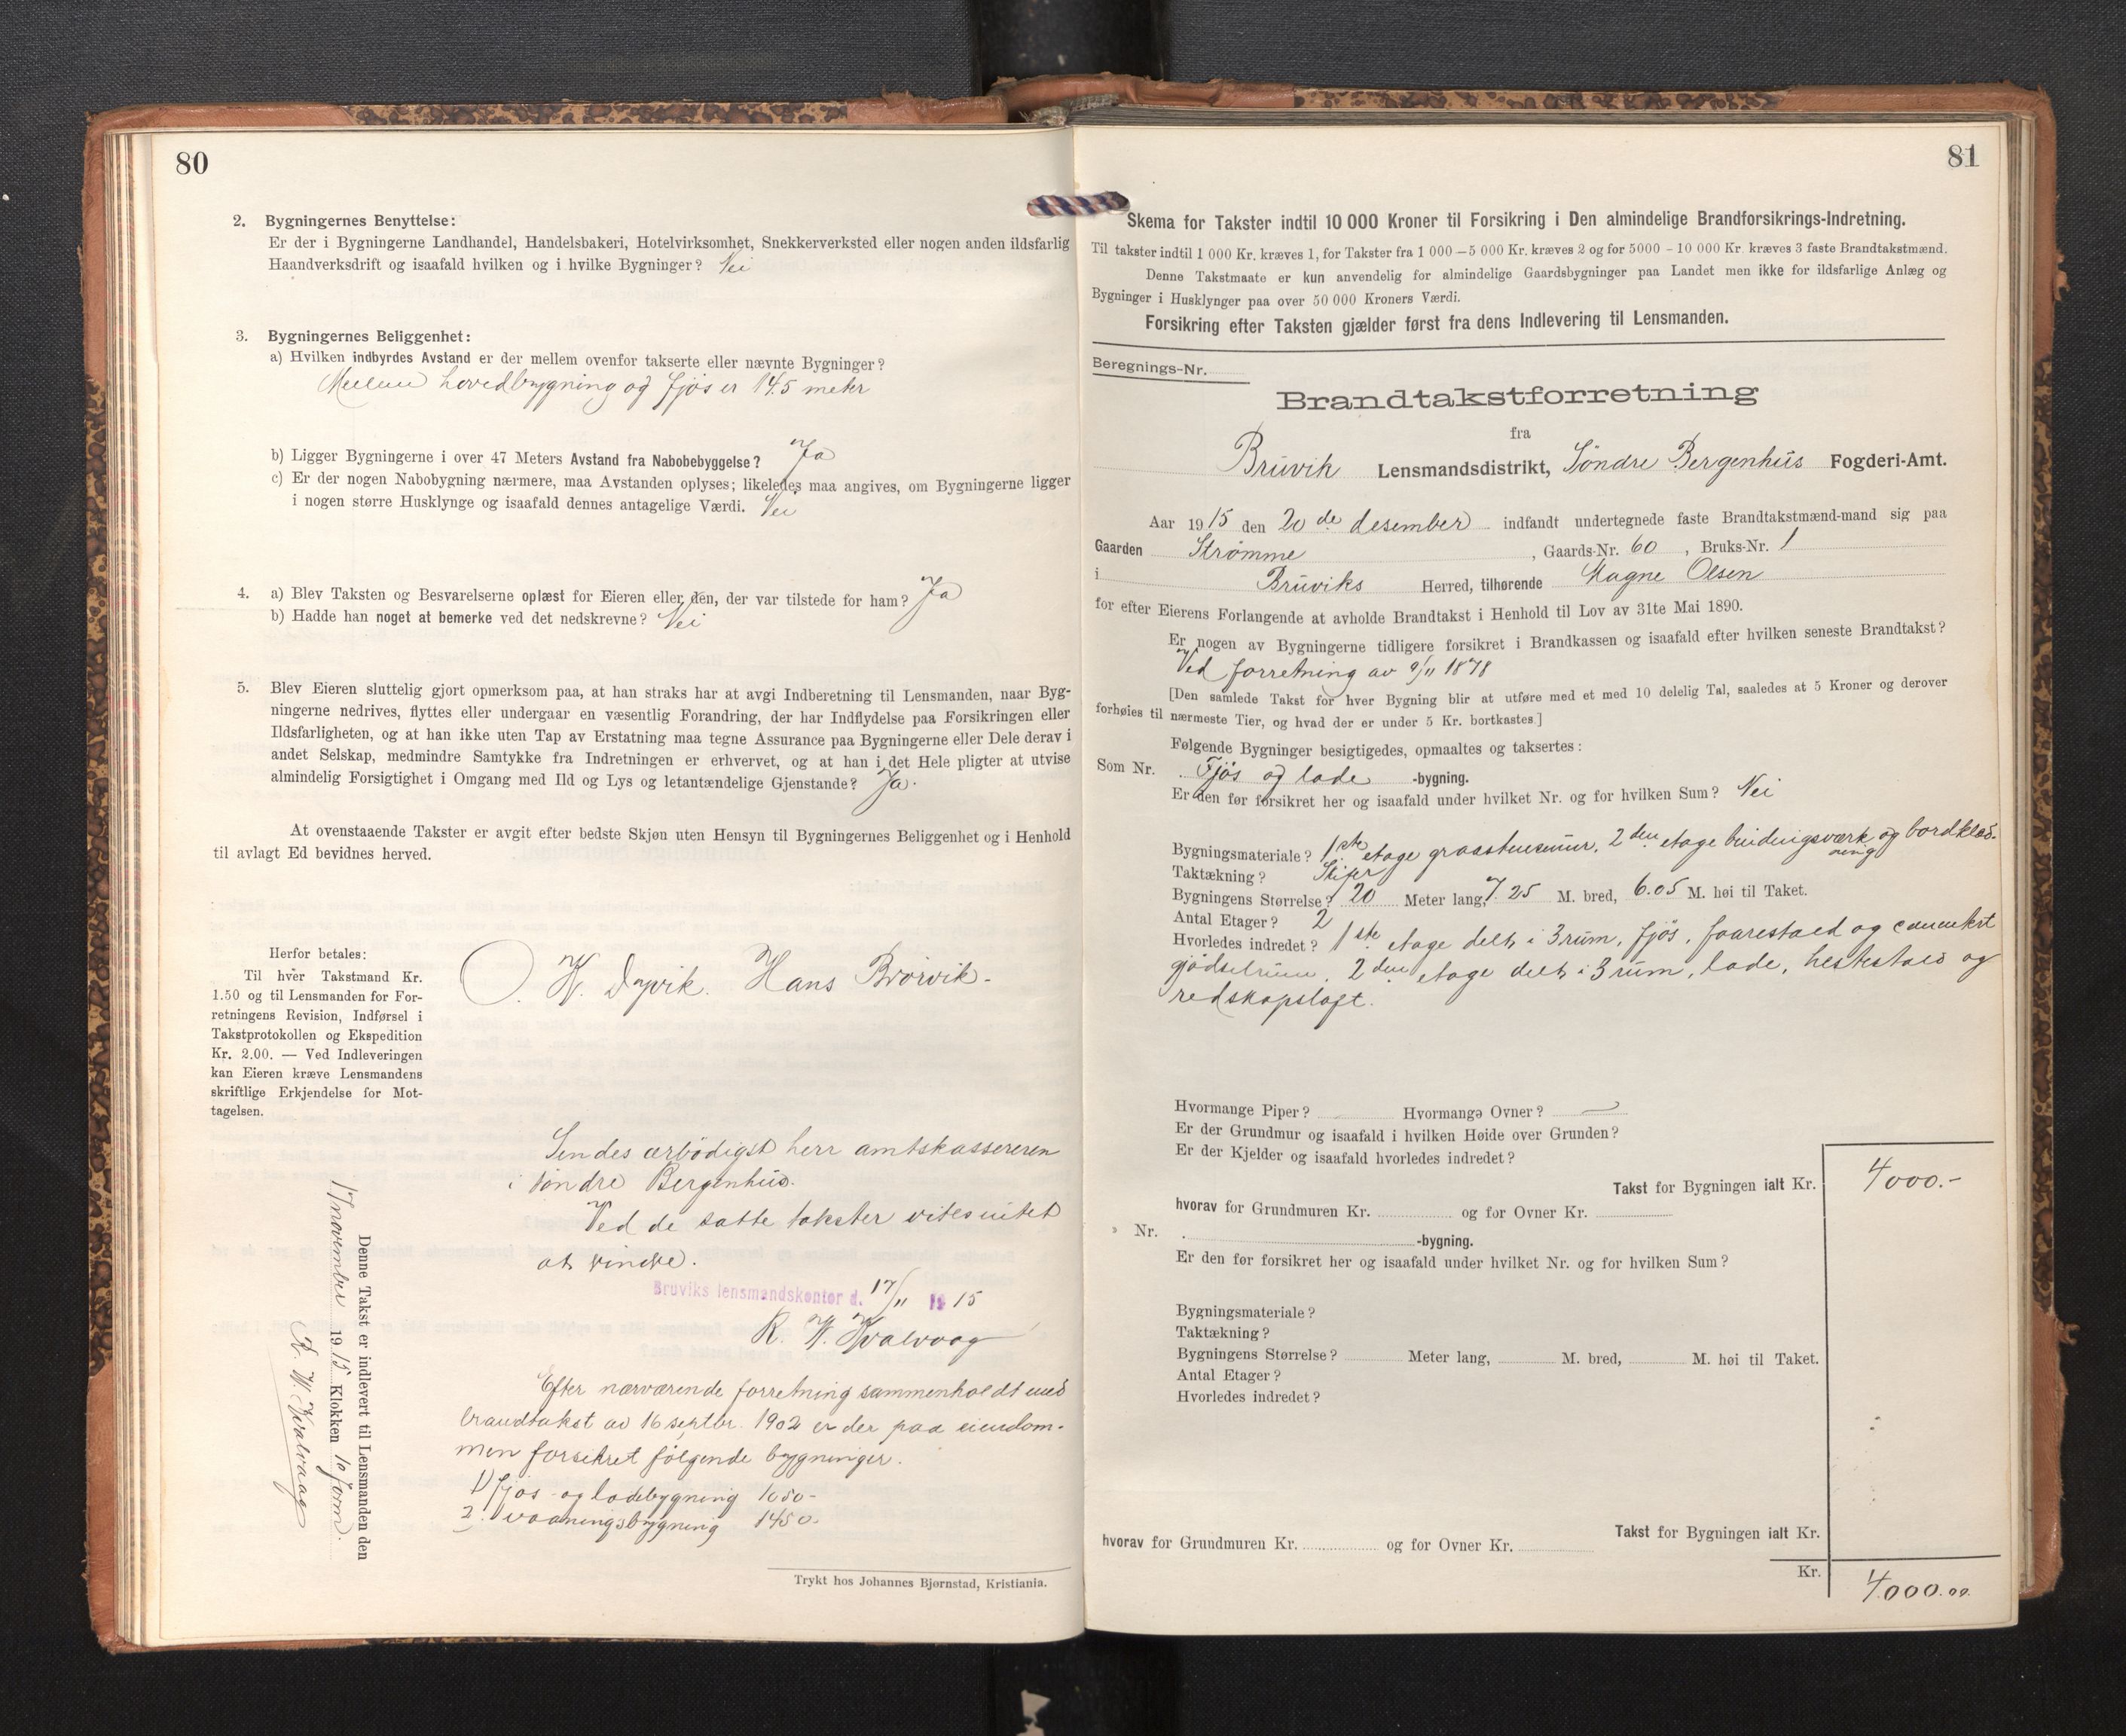 80
2. Bygningernes Benyttelse:
Er der i Bygningerne Landhandel, Handelsbakeri, Hotelvirksomhet, Snekkerverksted eller nogen anden ildsfarlig
Haandverksdrift og isaafald hvilken og i hvilke Bygninger? Nei
3. Bygningernes Beliggenhet:
a) Hvilken indbyrdes Avstand er der mellem ovenfor takserte eller nævnte Bygninger?
Mellem hovedbygning og fjøs er 14.5 meter
b) Ligger Bygningerne i over 47 Meters Avstand fra Nabobebyggelse? Ja
c) Er der nogen Nabobygning nærmere, maa Avstanden oplyses; likeledes maa angives, om Bygningerne ligger
i nogen større Husklynge og isaafald dennes antagelige Værdi. Nei
4. a) Blev Taksten og Besvarelserne oplæst for Eieren eller den, der var tilstede for ham? Ja
b) Hadde han noget at bemerke ved det nedskrevne? Nei
5. Blev Eieren sluttelig gjort opmerksom paa, at han straks har at avgi Indberetning til Lensmanden, naar Byg-
ningerne nedrives, flyttes eller undergaar en væsentlig Forandring, der har Indflydelse paa Forsikringen eller
Ildsfarligheten, og at han ikke uten Tap av Erstatning maa tegne Assurance paa Bygningerne eller Dele derav i
andet Selskap, medmindre Samtykke fra Indretningen er erhvervet, og at han i det Hele pligter at utvise
almindelig Forsigtighet i Omgang med Ild og Lys og letantændelige Gjenstande? Ja.
At ovenstaaende Takster er avgit efter bedste Skjøn uten Hensyn til Bygningernes Beliggenhet og i Henhold
til avlagt Ed bevidnes herved.
Herfor betales:
Til hver Takstmand Kr.
1.50 og til Lensmanden for For-
retningens Revision, Indførsel i
Takstprotokollen og Ekspedition
Kr. 2.00. — Ved Indleveringen
kan Eieren kræve Lensmandens
skriftlige Erkjendelse for Mot-
tagelsen.
O. W. Dyvik. Hans Brørvik.
Sendes ærbødigst herr amtskassereren
i Søndre Bergenhus.
Ved de satte takster vites intet
at erindre.
Bruviks lensmandskontor d. 17/11 1915
R. W. Kvalvaag
Efter nærværende forretning sammenholdt med
brandtakst av 16 septbr. 1902 er der paa eiendom-
men forsikret følgende bygninger.
1) fjøs- og ladebygning 1050-
2. vaaningsbygning 1450-
Denne Takst er indlevert til Lensmanden den
17 november 1915 Klokken 10 form.
R. W. Kvalvaag
Trykt hos Johannes Bjørnstad, Kristiania.
81
Skema for Takster indtil 10 000 Kroner til Forsikring i Den almindelige Brandforsikrings-Indretning.
Til takster indtil 1 000 Kr. kræves 1, for Takster fra 1 000 — 5 000 Kr. kræves 2 og for 5000 – 10 000 Kr. kræves 3 faste Brandtakstmænd.
Denne Takstmaate er kun anvendelig for almindelige Gaardsbygninger paa Landet men ikke for ildsfarlige Anlæg og
Bygninger i Husklynger paa over 50 000 Kroners Værdi.
Forsikring efter Taksten gjælder først fra dens Indlevering til Lensmanden.
Beregnings-Nr.
Brandtakstforretning
fra
Bruvik Lensmandsdistrikt, Søndre Bergenhus Fogderi-Amt.
Aar 1915 den 20de desember indfandt undertegnede faste Brandtakstmænd-mand sig paa
Gaarden Strømme, Gaards-Nr. 60, Bruks-Nr. 1
i Bruviks Herred, tilhørende Magne Olsen
for efter Eierens Forlangende at avholde Brandtakst i Henhold til Lov av 31te Mai 1890.
Er nogen av Bygningerne tidligere forsikret i Brandkassen og isaafald efter hvilken seneste Brandtakst?
Ved forretning av 9/11 1878
[Den samlede Takst for hver Bygning blir at utføre med et med 10 delelig Tal, saaledes at 5 Kroner og derover
forhøies til nærmeste Tier, og hvad der er under 5 Kr. bortkastes.]
Følgende Bygninger besigtigedes, opmaaltes og taksertes:
Som Nr. Fjøs og lade -bygning.
Er den før forsikret her og isaafald under hvilket Nr. og for hvilken Sum? Nei
Bygningsmateriale? 1ste etage graastensmur, 2den etage bindingsværk og bordklæd-
ning
Taktækning? Skifer
Bygningens Størrelse? 20 Meter lang, 7.25 M. bred, 6.05 M. høi til Taket.
Antal Etager? 2
Hvorledes indredet? 1ste etage delt i 3 rum, fjøs, faarestald og cementert
gjødselrum. 2den etage delt i 3 rum, lade, hestestald og
redskapsloft.
Hvormange Piper? Hvormange Ovner? —
Er der Grundmur og isaafald i hvilken Høide over Grunden?
Er der Kjelder og isaafald hvorledes indredet?
Takst for Bygningen ialt Kr. 4000.-
hvorav for Grundmuren Kr. og for Ovner Kr.
» Nr. -bygning.
Er den før forsikret her og isaafald under hvilket Nr. og for hvilken Sum?
Bygningsmateriale?
Taktækning?
Bygningens Størrelse? Meter lang, M. bred, M. høi til Taket.
Antal Etager?
Hvorledes indredet?
Takst for Bygningen ialt Kr.
hvorav for Grundmuren Kr. og for Ovner Kr.
Kr. 4000.00.